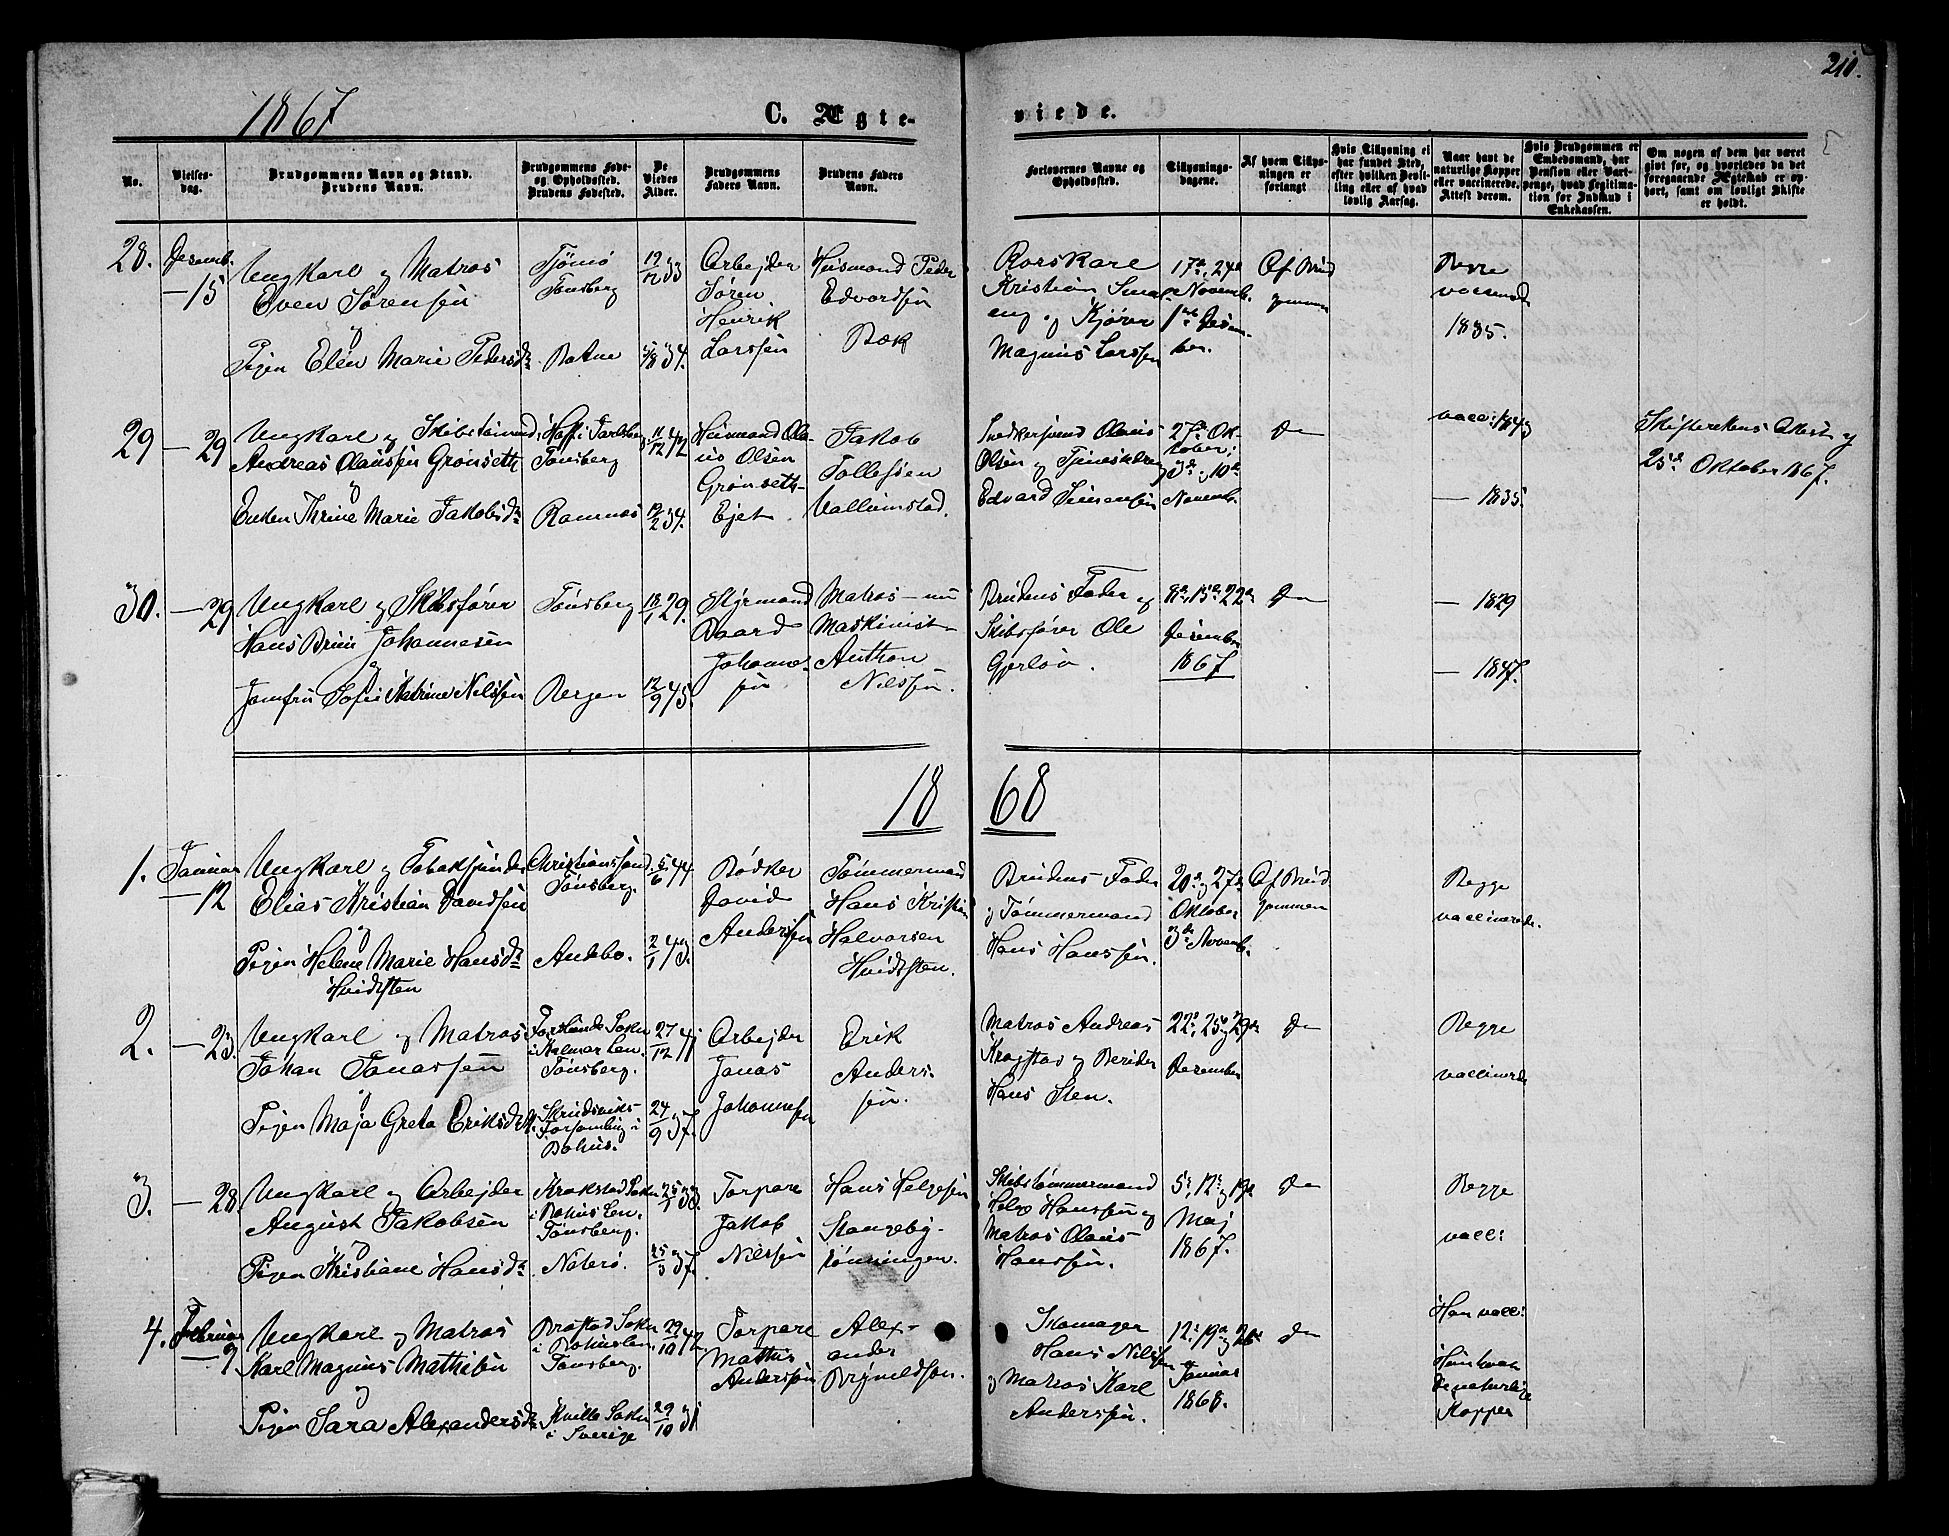 210.
1867
C. Ægte-
viede.
No.
Vielses-
dag.
Brudgommens Navn og Stand.
Brudens Navn.
Brudgommens Føde-
og Opholdssted.
Brudens Fødested.
De
Viedes
Alder.
Brudgommens
Faders Navn.
Brudens Faders
Navn.
Forlovernes Navne og
Opholdssted.
Tillysnings-
dagene.
Af hvem Tillys-
ningen er
forlangt
Hvis Tillysning ei
har fundet Sted,
efter hvilken Bevil-
ling eller af hvad
lovlig Aarsag.
Naar havt de
naturlige Kopper
eller vaccinerede.
Attest derom.
Hvis Brudgommen er
Embedsmand, har
Pension eller Vart-
penge, hvad Legitima-
tion for Indskud i
Enkekassen.
Om nogen af dem har været
gift før, og hvorledes da det
foregaaende Ægteskab er op-
hørt, samt om lovligt Skifte
er holdt.
28.
Desemb.
— 15
Ungkarl og Matros
Even Sørensen
og
Pigen Elen Marie Pedersdr
Tjømø
Tønsberg
Botne
19/12 33
5/8 34.
Arbejder
Søren
Henrik
Larssen
Husmand Peder
Edvardsen
Bæk
Rorskarl
Kristian
eng. og Kjører
Magnus Larssen
17de, 24de
Novemb.
1ste Desem-
ber.
Af Brud
gommen
Begge
1835.
29
— 29
Ungkarl og Skibstømmermd
Andreas Olaussen Grønseth
og
Enken Thrine Marie Jakobsdr
Hoff i Jarlsberg
Tønsberg
Ramnæs
11/12 42
19/2 34.
Husmand Ola-
us Olsen
Grønseth-
Ejet.
Jakob
Tollefsen
Vallumstad.
Snedkersvend Olaus
Olsen og Tjenestedreng
Edvard Simensen
27de Ok-
tober,
3de og 10de
Novemb.
Do
vacc: 1843
— 1835.
Skifterettens Attest af
25de Oktober 1867.
30.
— 29
Ungkarl og Skibsfører
Hans Bruu Johannesen
og
Jomfru Sofie Katrine Nilssen
Tønsberg
Bergen
18/1 29.
12/9 45.
Styrmand
Baard
Johannes-
sen
Matros — nu
Maskinist
Anthon
Nilssen.
Brudens Fader og
Skibsfører Ole
Gjerløv.
8de, 15de, 22de
Desember
1867
Do
— 1829
— 1847.
1868
1.
Januar
— 12
Ungkarl og Tobakspinder
Elias Kristian Davidsen
og
Pigen Helene Marie Hansdr
Hvidsten
Christianssand.
Tønsberg.
Andebo.
5/6 44
2/1 43.
Bødker
David
Anderssen
Tømmermand
Hans Kristian
Halvorsen
Hvidsten.
Brudens Fader
og Tømmermand
Hans Hanssen.
20de og 27de
Oktober
3de Novemb.
Af Brud
gommen
Begge
vaccinerede.
2.
— 23.
Ungkarl og Matros
Johan Jonassen
og
Pigen Maja Greta Eriksdr
Sokn
i Kalmar Len.
Tønsberg.
Forsamling i
Bohus.
27/12 41
24/9 37.
Arbejder
Jonas
Johannesen
Erik
Anders-
sen.
Matros Andreas
Krogstad og Berider
Hans Sten.
22de, 25de og 29de
Dezember
Do
Begge
vaccinerede
3.
— 28.
Ungkarl og Arbejder
August Jakobsen
og
Pigen Kristiane Hansdr.
Krokstad Sokn
i Bohus Len.
Tønsberg.
Nøterø.
25/1 33.
25/3 37.
Torpare
Jakob
Nilssen
Hans Helgesen
Stangeby-
rønningen.
Skibstømmermand
Helge Hanssen og
Matros Olaus
Hanssen.
5te, 12te og 19de
Maj
1867.
Do
Begge
vacc:
4.
Februar
— 9
Ungkarl og Matros
Karl Magnus Mathisen
og
Pigen Sara Alexandersdr
Brastad Sokn
i Bohuslen.
Tønsberg.
Kville Sokn
i Sverige
29/10 42.
29/10 31
Torpare
Mathis
Anderssen
Alex-
ander
Brynildsen.
Skomager
Hans Nilssen
og Matros Karl
Anderssen.
12te, 19de og 26de
Januar
1868.
Do
Han vacc:
Hun havt
de naturlige
Kopper